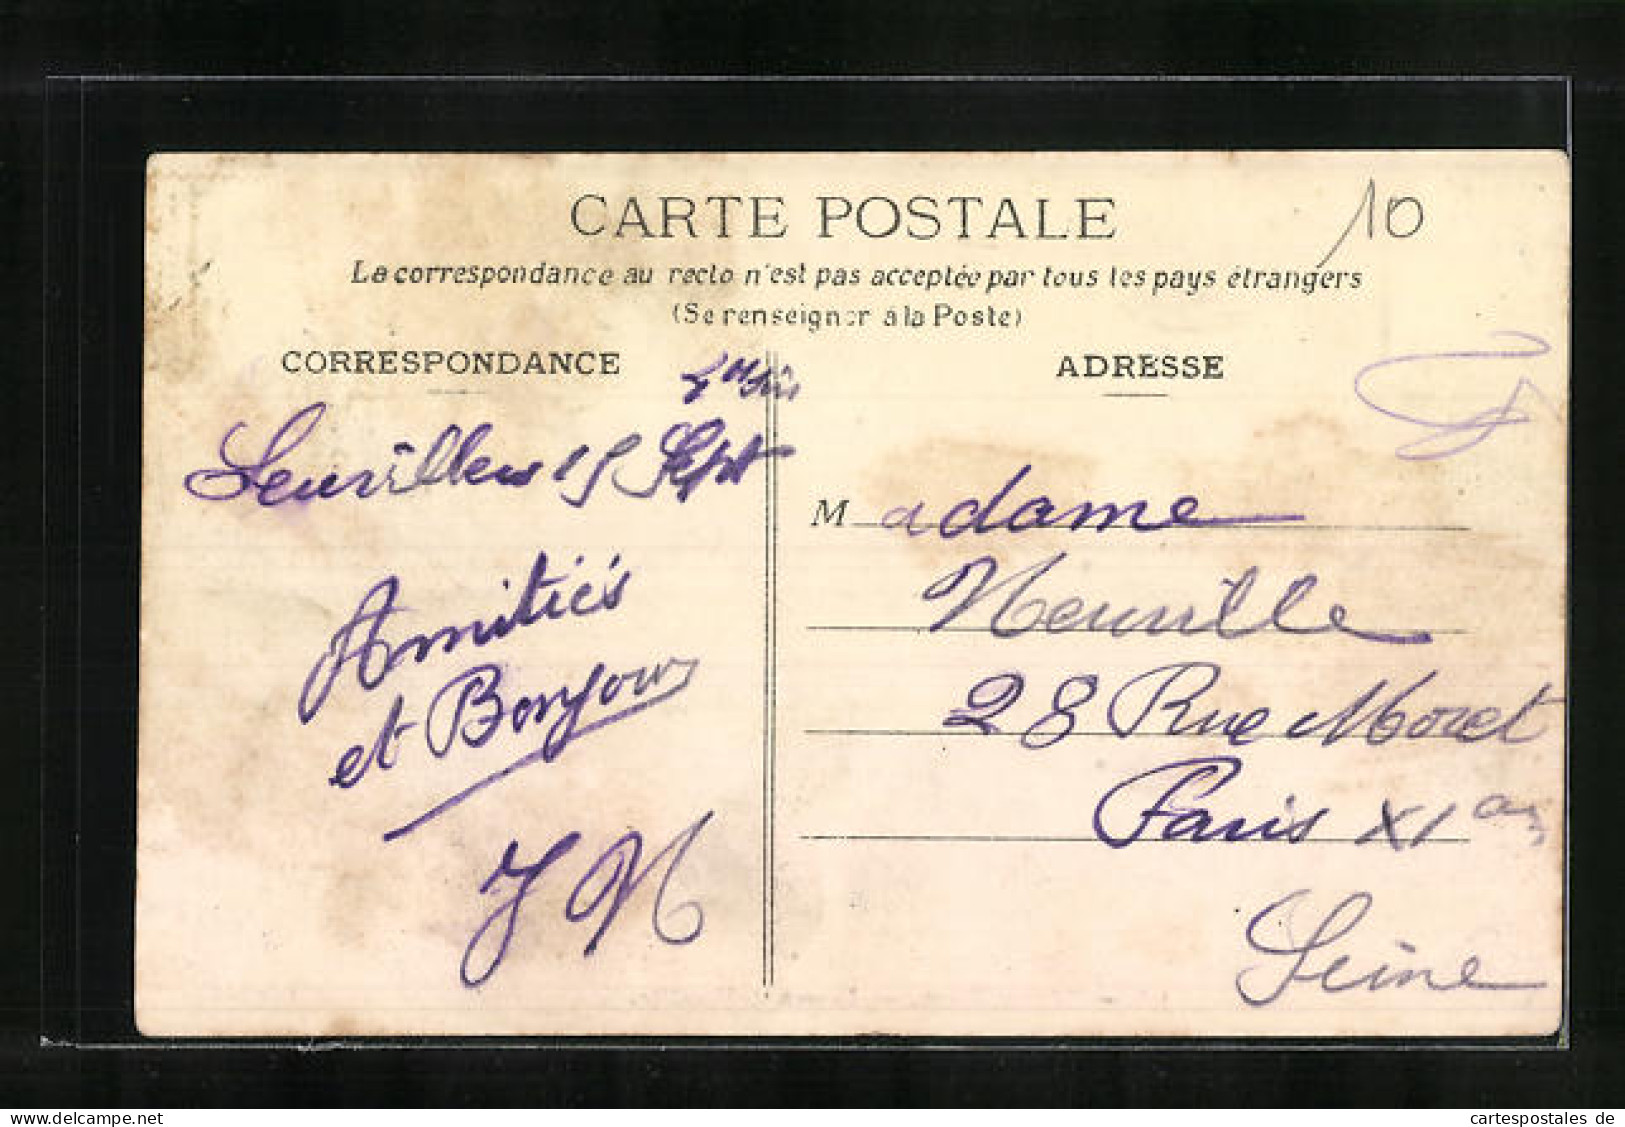 CARTE POSTALE
10
La correspondance au recto n'est pas acceptée par tous les pays étrangers
(Se renseigner à la Poste)
CORRESPONDANCE
15 Sept
Amitiés
et Bonjour
J N
ADRESSE
Madame
Neuville
28 Rue Moret
Paris XI
Seine
delcampe.net
cartespostales de